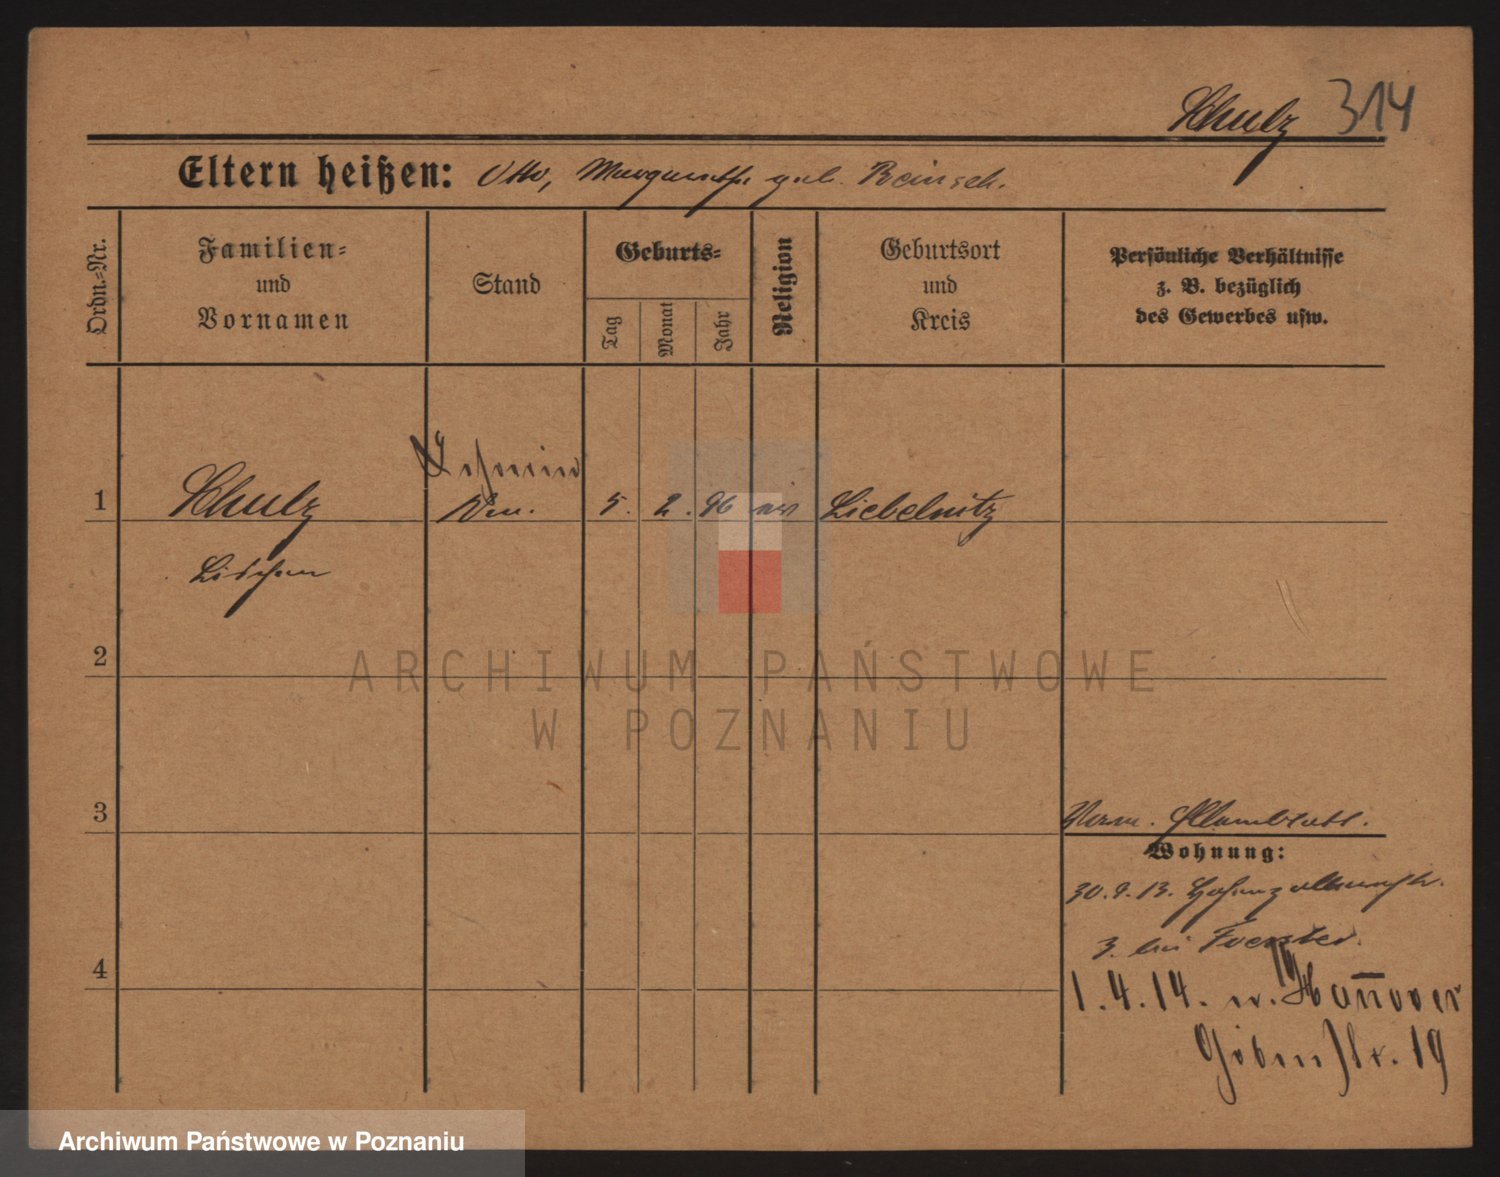 Schulz 314
Eltern heißen: Otto, Margarethe geb. Reinsch.
Ordn.-Nr.
Familien- und Vornamen
Stand
Geburts-
Tag
Monat
Jahr
Religion
Geburtsort und Kreis
Persönliche Verhältnisse z. B. bezüglich des Gewerbes usw.
1
Schulz
5. 2. 96 ev Liebelnitz
Lischen
2
ARCHIWUM PAŃSTWOWE
W POZNANIU
3
Wohnung:
30.9.13. Hohenzollernstr.
3. bei Foerster.
4
1.4.14. n. Hannover
Göbenstr. 19
Archiwum Państwowe w Poznaniu